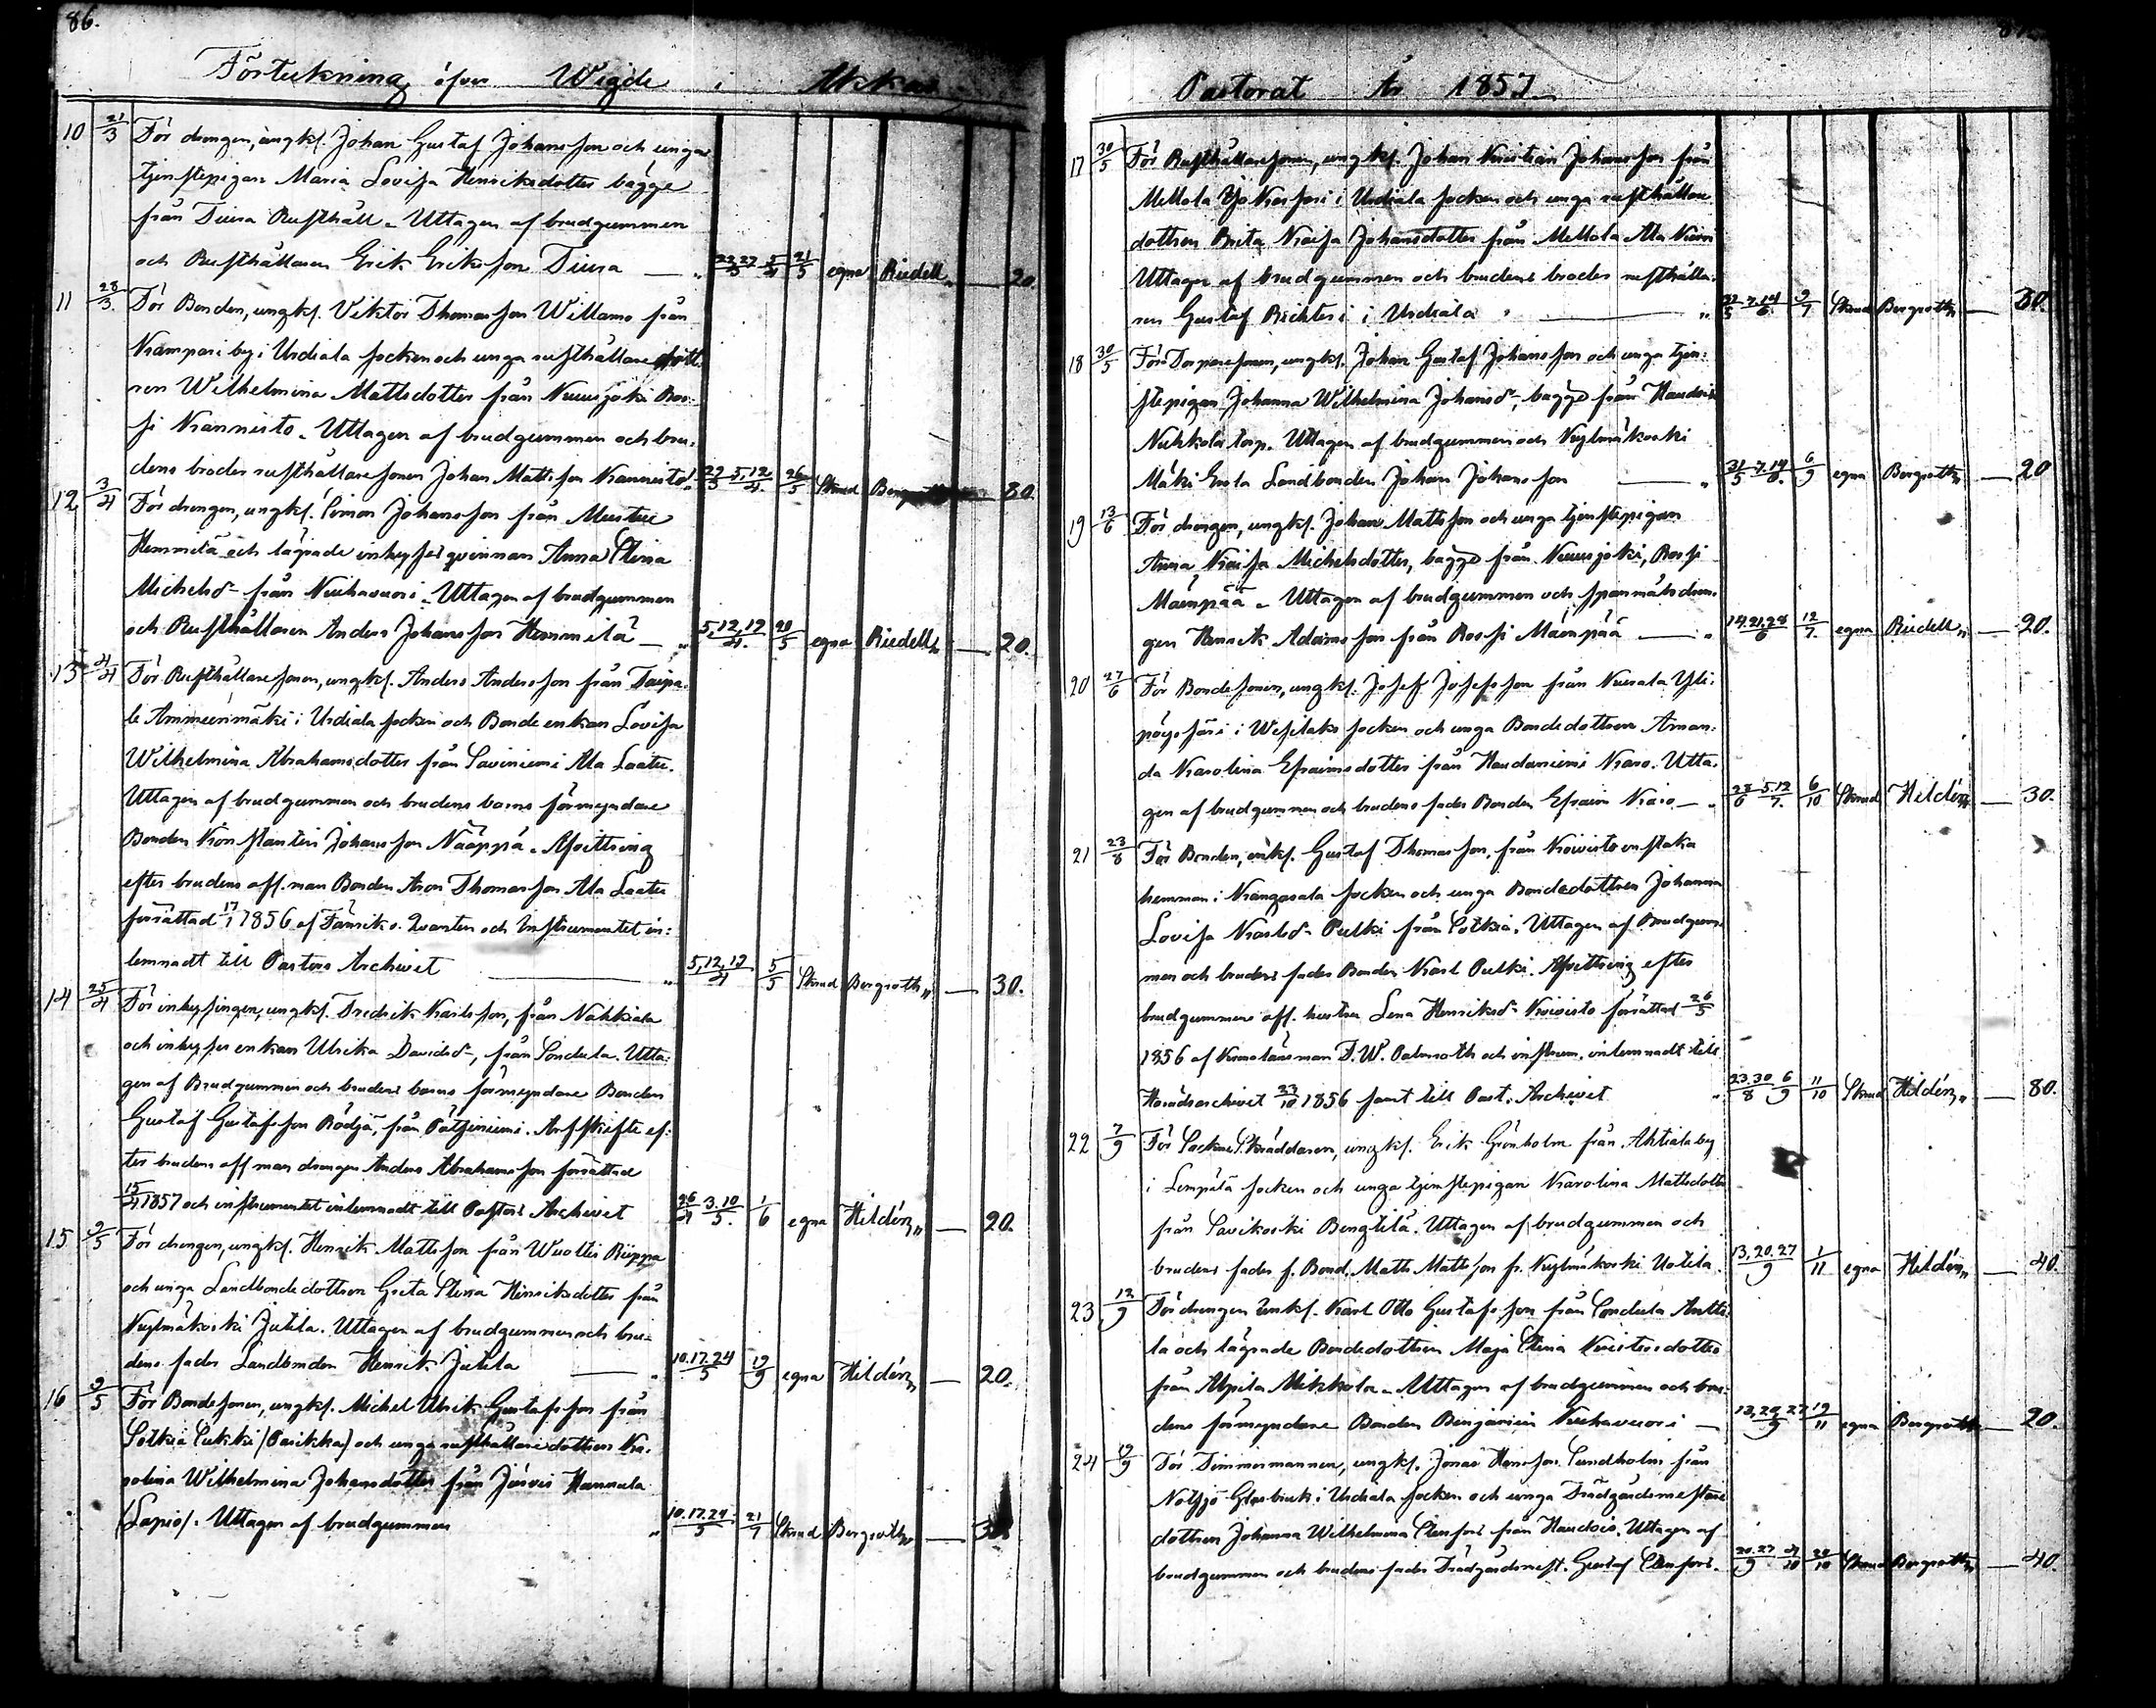 86.
Förteckning öfver Wigde i Akkas
10 21/3 För drengen, ungkf. Johan Gustaf Johansson och unga
tjenstepigan Maria Lovisa Henriksdotter bägge
från Diura Rusthåll. Uttagen af brudgummen
och Rusthållaren Erik Eriksson Diura — 21/5 egna Riedell — 20.
11 28/3. För Bonden, ungkf. Viktor Thomasson Willamo från
Krampari by i Urdiala socken och unga rusthållare dott
ren Wilhelmina Mattsdotter från Kuurjoki Ros-
si Krannisto. Uttagen af brudgummen och bru-
dens broder rusthållaresonen Johan Mattsson Krannisto 29/3 5,12/4. 26/5 Skrud 80.
12 3/4 För drengen, ungkf. Simon Johansson från Mustue
Hemmilä och lägrade inhyses qvinnan Anna Stina
Michelsd- från Neuhavuori. Uttagen af brudgummen
och Rusthållaren Anders Johansson Hemmilä — 5,12,19/4. 20/5 egna Riedell — 20.
13 4/4 För Rusthållaresonen, ungkf. Anders Andersson från Taipa-
le Ammeenmäki i Urdiala socken och Bonde enkan Lovisa
Wilhelmina Abrahamsdotter från Saviniemi Ala Laatu.
Uttagen af brudgummen och brudens barns förmyndare
Bonden Konstantin Johansson Nääppä. Afvittring
efter brudens afl. man Bonden Aron Thomasson Ala Laatu
förrättad 17/1 1856 af Fänriks. och Instrumentet in-
lemnadt till Pastors Archivet — 5,12,19/4 5/5 Skrud Bergroth — 30.
14 25/4 För inhysingen, ungkf. Fredrik Karlsson, från Nahkiala
och inhyses enkan Ulrika Davidsd-, från Sondula. Utta-
gen af Brudgummen och brudens barns förmyndare Bonden
Gustaf Gustafsson Rödjä, från Pätsiniemi. Arfskifte ef-
ter brudens afl. man drengen Anders Abrahamsson förrättad
15/4 1857 och instrumentet inlemnadt till Pastors Archivet 26/4 3.10/5. 1/6 egna Hildén — 20.
15 9/5 För drengen, ungkf. Henrik Mattsson från Wuoltti Riippa
och unga Landbondedottren Greta Stina Henriksdotter från
Kylmäkoski Jutila. Uttagen af brudgummen och bru-
dens fader Landbonden Henrik Jutila — 10.17.24/5 19/9 egna Hildén — 20.
16 9/5 För Bondesonen, ungkf. Michel Ulrik Gustafsson från
Sotkia Sukki (Parikka) och unga rusthållaredottren Ka-
rolina Wilhelmina Johansdotter från Jarvis Hannula
(Lapio). Uttagen af brudgummen 10.17.24/5 21/7 Skrud Bergroth —
Pastorat År 1857
17 30/5 För Rusthållaresonen, ungkf. Johan Kristian Johansson från
Mellola Yjö i Urdiala socken och unga rusthållare
dottren Brita Kaisa Johansdotter från Mellola Ala
Uttagen af brudgummen och brudens broder rusthålla-
ren Gustaf Richter i Urdiala — 31/5 7.14/6. 9/7 Skrud Bergroth — 30.
18 30/5 För Torparesonen, ungkf. Johan Gustaf Johansson och unga tjen-
stepigan Johanna Wilhelmina Johansd-, bägge från Haudois
Nuhkola torp. Uttagen af brudgummen och Kylmäkoski
Mäki Eerola Landbonden Johan Johansson — 31/5 7.14/6. 6/9 egna Bergroth — 20
19 13/6 För drengen, ungkf. Johan Mattsson och unga tjenstepigan
Anna Kaisa Michelsdotter, bägge från Kuurjoki, Rossi
Mäenpää. Uttagen af brudgummen och spanmålsdren-
gen Henrik Adamsson från Rossi Mäenpää — 14.21.28/6 12/7. egna Riedell — 20.
20 27/6 För Bondesonen, ungkf. Josef Josefsson från Kurala Yli-
i Wesilaks socken och unga Bondedottren Aman-
da Karolina Efraimsdotter från Haudaniemi Karo. Utta-
gen af brudgummen och brudens fader Bonden Efraim Karo — 28/6 5.12/7. 6/10 Skrud Hildén — 30.
21 23/8 För Bonden, enkf. Gustaf Thomasson, från Koivisto enstaka
hemman i Kangasala socken och unga Bondedottren Johanna
Lovisa Karlsd- Pulki från Sotkia. Uttagen af Brudgum-
men och brudens fader Bonden Karl Pulki. Afvittring efter
brudgummens afl. hustru Lena Henriksd- Koivisto förrättad 26/5
1856 af Kronolänsman F. W. Palmroth och instrum. inlemnadt till
Häradsarchivet 23/10 1856 samt till Past. Archivet 23.30/8 6/9 11/10 Skrud Hildén — 80.
22 7/9 För Sockne Skräddaren, ungkf. Erik Grönholm från Ahtiala by
i Lempälä socken och unga tjenstepigan Karolina Mattsdotter
från Savikoski Bengtilä. Uttagen af brudgummen och
brudens fader f. Bond. Matts Mattsson fr. Kylmäkoski Uotila 13.20.27/9 1/11 egna Hildén — 40.
23 12/9 För drengen Enkf. Karl Otto Gustafsson från Sondula Antti-
la och lägrade Bondedottren Maja Stina Kristersdotter
från Alpila Mikkola. Uttagen af brudgummen och bru-
dens förmyndare Bonden Benjamin Neuhavuori — 13.20.27/9 19/11 egna Bergroth — 20.
24 19/9 För Timmermannen, ungkf. Jonas Hansson Sundholm från
Notsjö Glasbruk i Urdiala socken och unga Trädgårdsmästare
dottren Johanna Wilhelmina Stenfors från Haudois. Uttagen af
brudgummen och brudens fader Trädgårdsmäst. Gustaf Stenfors. 20.27/9 4/10 20/10 Skrud Bergroth — 40.